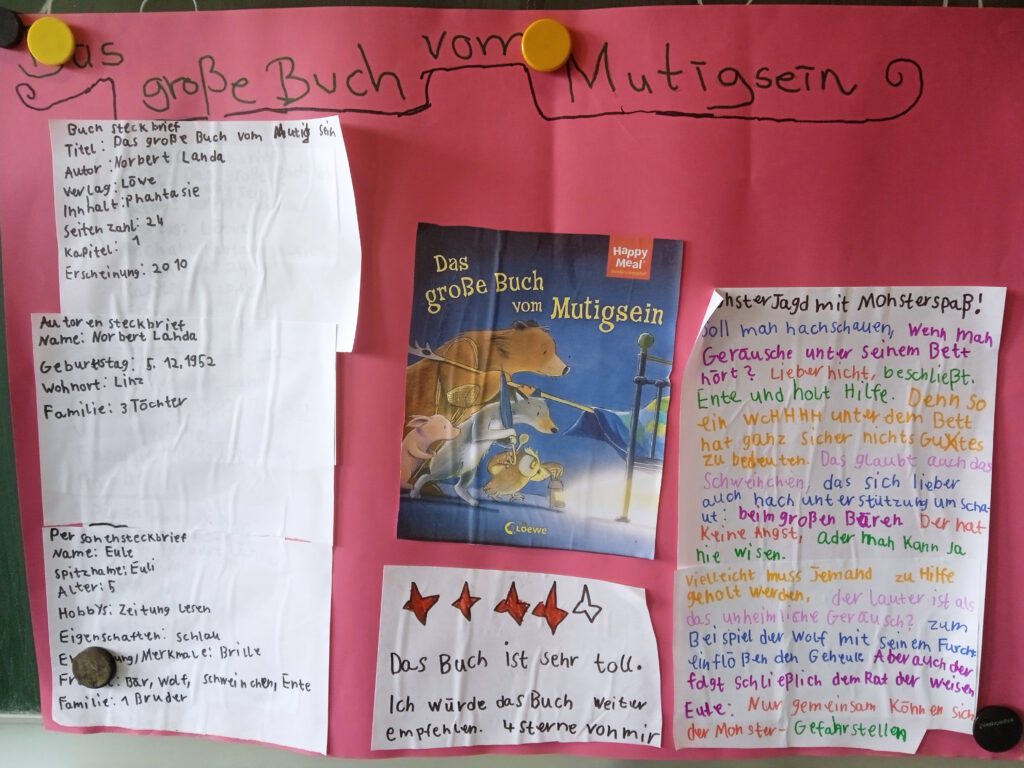 Das
große Buch vom Mutigsein
Buch steckbrief
Titel: Das große Buch vom Mutig sein
Autor: Norbert Landa
Verlag: Löve
Innhalt: Phantasie
Seiten zahl: 24
Kapitel: 1
Erscheinung: 2010
Autoren steckbrief
Name: Norbert Landa
Geburtstag: 5. 12. 1952
Wohnort: Linz
Familie: 3 Töchter
Personensteckbrief
Name: Eule
Spitzname: Euli
Alter: 5
Hobbys: Zeitung lesen
Eigenschaften: schlau
Merkmale: Brille
Bär, Wolf, schweinchen, Ente
Familie: 1 Bruder
Happy
Meal
Das
große Buch
vom Mutigsein
Loewe
Das Buch ist sehr toll.
Ich würde das Buch weiter
empfehlen. 4 sterne von mir
nster Jagd mit Monsterspaß!
Soll man nachschauen, wenn man
Geräusche unter seinem Bett
hört? Lieber nicht, beschließt.
Ente und holt Hilfe. Denn so
ein WCHHHH unter dem Bett
hat ganz sicher nichts Gutes
zu bedeuten. Das glaubt auch das
Schweinchen, das sich lieber
auch nach unterstützung umscha-
ut: beim großen Bären Der hat
keine Angst, ader man kann ja
nie wisen.
vielleicht muss jemand zu Hilfe
geholt werden, der lauter ist als
das unheimliche Geräusch? zum
Beispiel der Wolf mit seinem Furcht
einflößen den Geheule Aber auch der
folgt schließlich dem Rat der weisen
Eule: Nur gemeinsam können sich
der Monster-Gefahr stellen